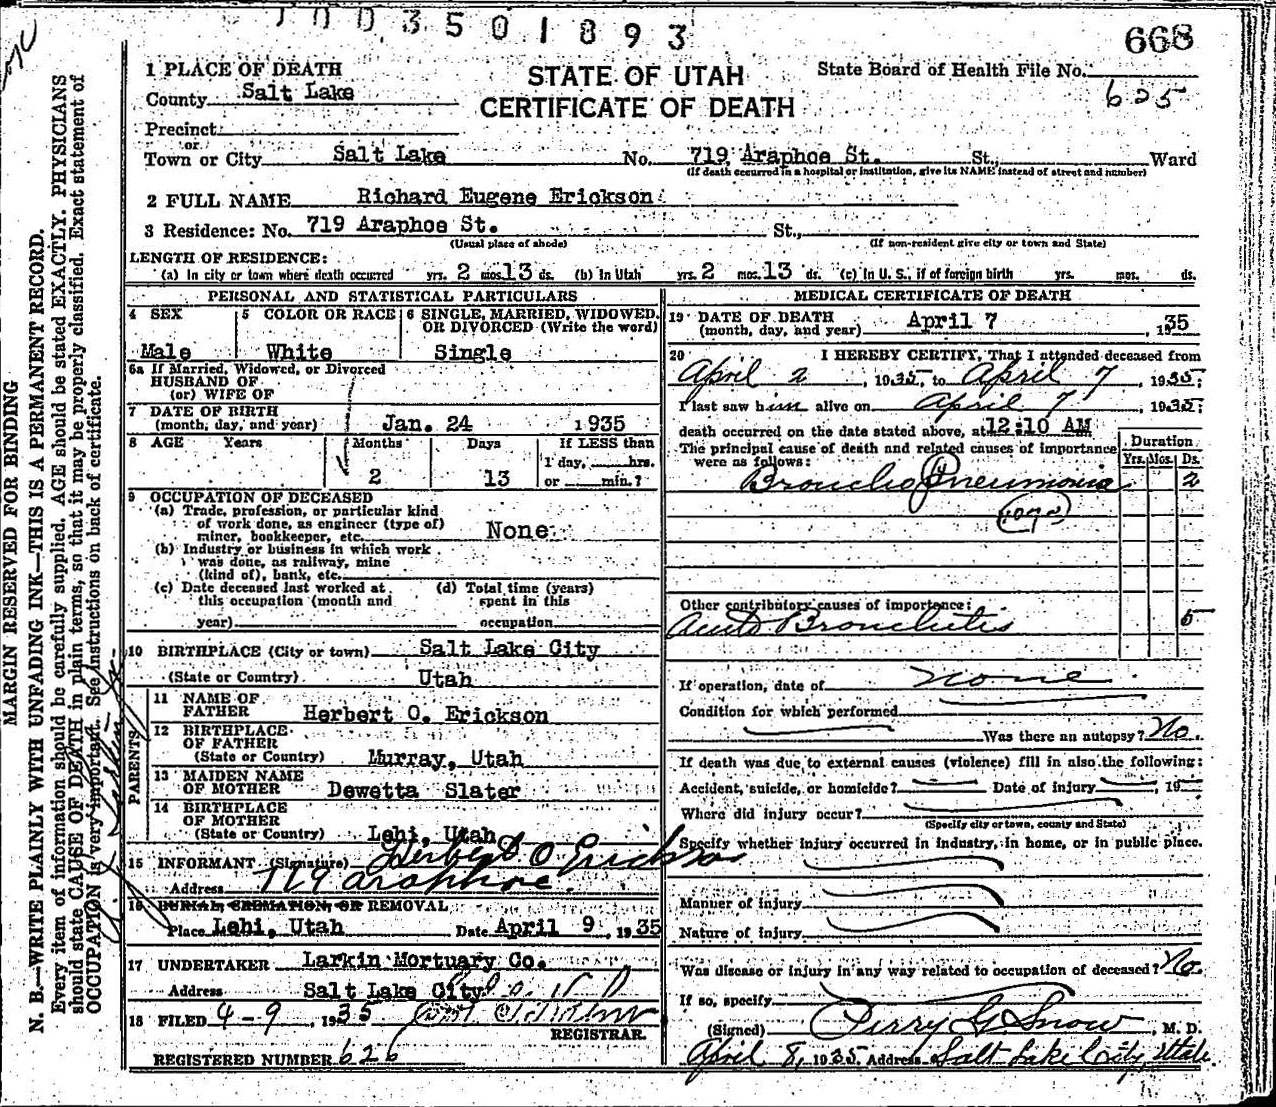 1003501893
668
1 PLACE OF DEATH
STATE OF UTAH
State Board of Health File No.
County Salt Lake
CERTIFICATE OF DEATH
625
Precinct
or
Town or City Salt Lake No. 719 Araphoe St. St., Ward
(If death occurred in a hospital or institution, give its NAME instead of street and number)
2 FULL NAME Richard Eugene Erickson
3 Residence: No. 719 Araphoe St. St.,
(Usual place of abode) (If non-resident give city or town and State)
LENGTH OF RESIDENCE:
(a) In city or town where death occurred yrs. 2 mos. 13 ds. (b) In Utah yrs. 2 mos. 13 ds. (c) In U. S., if of foreign birth yrs. mos. ds.
PERSONAL AND STATISTICAL PARTICULARS
4 SEX 5 COLOR OR RACE 6 SINGLE, MARRIED, WIDOWED, OR DIVORCED (Write the word)
Male White Single
6a If Married, Widowed, or Divorced
HUSBAND OF
(or) WIFE OF
7 DATE OF BIRTH
(month, day, and year) Jan. 24 1935
8 AGE Years Months Days If LESS than
1 day, hrs.
2 13 or min.?
9 OCCUPATION OF DECEASED
(a) Trade, profession, or particular kind
of work done, as engineer (type of)
miner, bookkeeper, etc. None
(b) Industry or business in which work
was done, as railway, mine
(kind of), bank, etc.
(c) Date deceased last worked at (d) Total time (years)
this occupation (month and spent in this
year) occupation
10 BIRTHPLACE (City or town) Salt Lake City
(State or Country) Utah
PARENTS
11 NAME OF
FATHER Herbert O. Erickson
12 BIRTHPLACE
OF FATHER
(State or Country) Murray, Utah
13 MAIDEN NAME
OF MOTHER Dewetta Slater
14 BIRTHPLACE
OF MOTHER
(State or Country) Lehi, Utah
15 INFORMANT (Signature) Herbert O Erickson
Address 719 araphoe.
16 BURIAL, CREMATION, OR REMOVAL
Place Lehi, Utah Date April 9, 1935
17 UNDERTAKER Larkin Mortuary Co.
Address Salt Lake City
18 FILED 4-9, 1935
REGISTRAR.
REGISTERED NUMBER 626
MEDICAL CERTIFICATE OF DEATH
19 DATE OF DEATH
(month, day, and year) April 7, 1935
20 I HEREBY CERTIFY, That I attended deceased from
April 2, 1935, to April 7, 1935;
I last saw him alive on April 7, 1935;
death occurred on the date stated above, at 12:10 AM
The principal cause of death and related causes of importance
were as follows:
Duration
Yrs. Mos. Ds.
Broncho Pneumonia 2
107a
Other contributory causes of importance:
Acute Bronchitis 5
If operation, date of None
Condition for which performed
Was there an autopsy? No.
If death was due to external causes (violence) fill in also the following:
Accident, suicide, or homicide? Date of injury, 19
Where did injury occur?
(Specify city or town, county and State)
Specify whether injury occurred in industry, in home, or in public place.
Manner of injury
Nature of injury
Was disease or injury in any way related to occupation of deceased? No.
If so, specify
(Signed) Perry G Snow, M. D.
April 8, 1935 Address Salt Lake City, Utah.
MARGIN RESERVED FOR BINDING
N. B.—WRITE PLAINLY WITH UNFADING INK—THIS IS A PERMANENT RECORD.
Every item of information should be carefully supplied. AGE should be stated EXACTLY. PHYSICIANS
should state CAUSE OF DEATH in plain terms, so that it may be properly classified. Exact statement of
OCCUPATION is very important. See instructions on back of certificate.